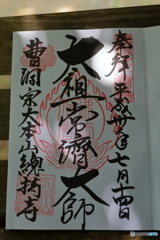 奉拝 平成廿年七月十四日
太祖常濟大師
曹洞宗大本山總持寺